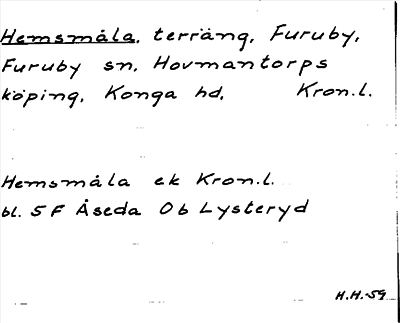 Hemsmåla, terräng, Furuby,
Furuby sn, Hovmantorps
köping, Konga hd, Kron.l.
Hemsmåla ek Kron.l.
bl. 5F Åseda Ob Lysteryd
H.H.-59